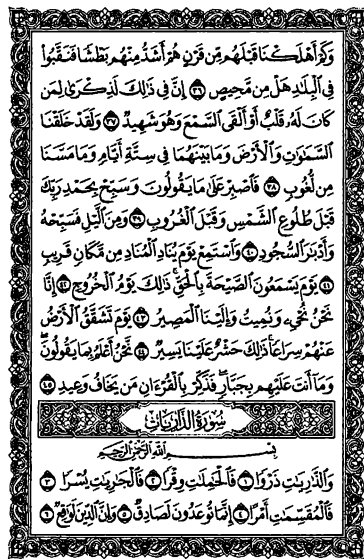 وَكَمْ أَهْلَكْنَا قَبْلَهُم مِّن قَرْنٍ هُمْ أَشَدُّ مِنْهُم بَطْشًا فَنَقَّبُوا۟
فِى ٱلْبِلَـٰدِ هَلْ مِن مَّحِيصٍ ٣٦ إِنَّ فِى ذَٰلِكَ لَذِكْرَىٰ لِمَن
كَانَ لَهُۥ قَلْبٌ أَوْ أَلْقَى ٱلسَّمْعَ وَهُوَ شَهِيدٌ ٣٧ وَلَقَدْ خَلَقْنَا
ٱلسَّمَـٰوَٰتِ وَٱلْأَرْضَ وَمَا بَيْنَهُمَا فِى سِتَّةِ أَيَّامٍ وَمَا مَسَّنَا
مِن لُّغُوبٍ ٣٨ فَٱصْبِرْ عَلَىٰ مَا يَقُولُونَ وَسَبِّحْ بِحَمْدِ رَبِّكَ
قَبْلَ طُلُوعِ ٱلشَّمْسِ وَقَبْلَ ٱلْغُرُوبِ ٣٩ وَمِنَ ٱلَّيْلِ فَسَبِّحْهُ
وَأَدْبَـٰرَ ٱلسُّجُودِ ٤٠ وَٱسْتَمِعْ يَوْمَ يُنَادِ ٱلْمُنَادِ مِن مَّكَانٍ قَرِيبٍ
٤١ يَوْمَ يَسْمَعُونَ ٱلصَّيْحَةَ بِٱلْحَقِّ ۚ ذَٰلِكَ يَوْمُ ٱلْخُرُوجِ ٤٢ إِنَّا
نَحْنُ نُحْىِۦ وَنُمِيتُ وَإِلَيْنَا ٱلْمَصِيرُ ٤٣ يَوْمَ تَشَقَّقُ ٱلْأَرْضُ
عَنْهُمْ سِرَاعًا ۚ ذَٰلِكَ حَشْرٌ عَلَيْنَا يَسِيرٌ ٤٤ نَّحْنُ أَعْلَمُ بِمَا يَقُولُونَ ۖ
وَمَآ أَنتَ عَلَيْهِم بِجَبَّارٍ ۖ فَذَكِّرْ بِٱلْقُرْءَانِ مَن يَخَافُ وَعِيدِ ٤٥
سُورَةُ ٱلذَّارِيَاتِ
بِسْمِ ٱللَّهِ ٱلرَّحْمَـٰنِ ٱلرَّحِيمِ
وَٱلذَّٰرِيَـٰتِ ذَرْوًا ١ فَٱلْحَـٰمِلَـٰتِ وِقْرًا ٢ فَٱلْجَـٰرِيَـٰتِ يُسْرًا ٣
فَٱلْمُقَسِّمَـٰتِ أَمْرًا ٤ إِنَّمَا تُوعَدُونَ لَصَادِقٌ ٥ وَإِنَّ ٱلدِّينَ لَوَٰقِعٌ ٦